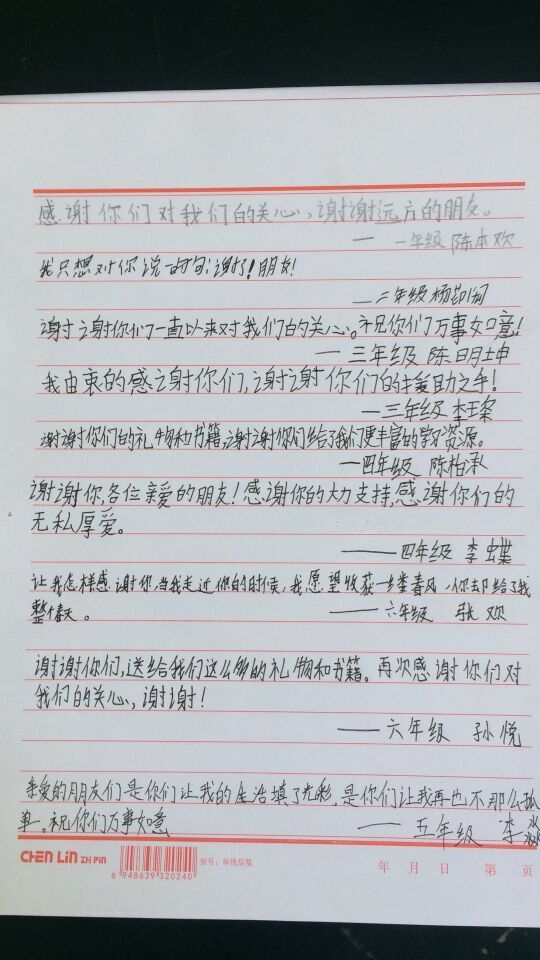 感谢你们对我们的关心，谢谢远方的朋友。
— 一年级 陈本欢
我只想对你说一句：谢了！朋友！
— 二年级 杨
谢谢你们一直以来对我们的关心。祝你们万事如意！
— 三年级 陈明坤
我由衷的感谢你们，谢谢你们的援助之手！
— 三年级 李
谢谢你们的礼物和书籍，谢谢你们给了我们更丰富的学习资源。
— 四年级 陈柏承
谢谢你，各位亲爱的朋友！感谢你的大力支持，感谢你们的
无私厚爱。
—— 四年级 李蝶
让我怎样感谢你，当我走近你的时候，我愿望收获一缕春风，你却给了我
整个春天。 —— 六年级 张欢
谢谢你们，送给我们这么多的礼物和书籍。再次感谢你们对
我们的关心，谢谢！
—— 六年级 孙悦
亲爱的朋友们是你们让我的生活填了光彩，是你们让我再也不那么孤
单。祝你们万事如意 —— 五年级 李
CHEN LIN ZHI PIN 6 948639 320240 型号：单线信笺 年 月 日 第 页